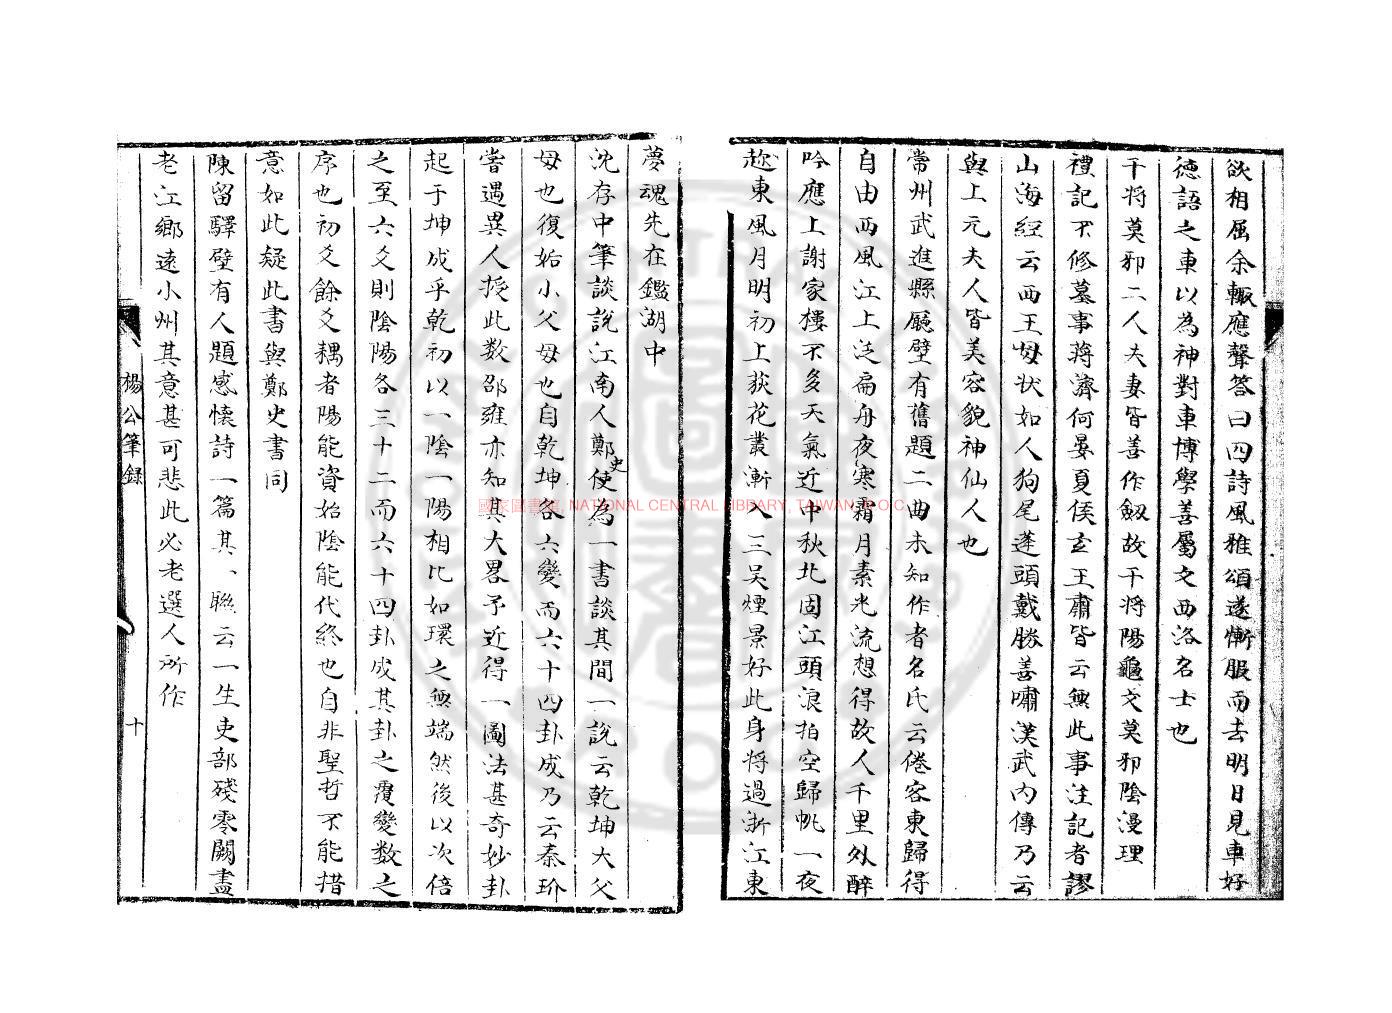 欲相屈余輙應聲答曰四詩風雅頌遂慚服而去明日見車好
德語之車以為神對車博學善屬文西洛名士也
干將莫邪二人夫妻皆善作劔故干將陽龜文莫邪陰漫理
禮記不修墓事蔣濟何晏夏侯玄王肅皆云無此事注記者謬
山海經云西王母状如人狗尾蓬頭戴勝善嘯漢武内傳乃云
與上元夫人皆美容貌神仙人也
常州武進縣廳壁有舊題二曲未知作者名氏云倦客東歸得
自由西風江上泛扁舟夜寒霜月素光流想得故人千里外醉
吟應上謝家樓不多天氣近中秋北固江頭浪拍空歸帆一夜
趂東風月明初上荻花叢漸入三吴煙景好此身将過浙江東
夢魂先在鑑湖中
沈存中筆談說江南人鄭史使為一書談其間一說云乾坤大父
母也復姤小父母也自乾坤各六變而六十四卦成乃云秦玠
嘗遇異人授此数邵雍亦知其大畧予近得一圖法甚奇妙卦
起于坤成乎乾初以一陰一陽相比如環之無端然後以次倍
之至六爻則陰陽各三十二而六十四卦成其卦之覆變数之
序也初爻餘爻耦者陽能資始陰能代終也自非聖哲不能措
意如此疑此書與鄭史書同
陳留驛壁有人題感懷詩一篇其、聯云一生吏部殘零闕盡
老江鄉遠小州其意甚可悲此必老選人所作
楊公筆録
十
國家圖書館, NATIONAL CENTRAL LIBRARY, TAIWAN, R.O.C